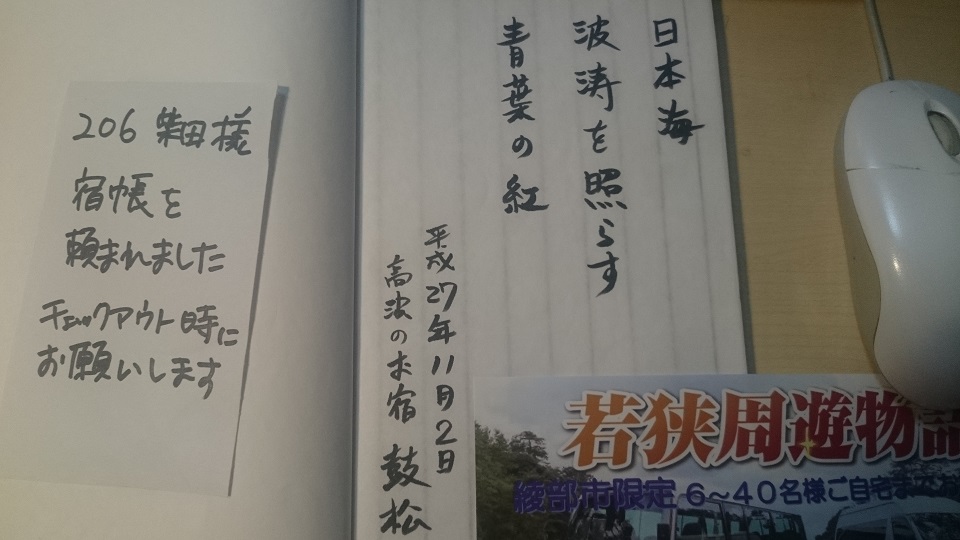 206 柴田様
宿帳を
頼まれました
チェックアウト時に
お願いします
日本海
波涛を照らす
青葉の紅
平成27年11月2日
高波のお宿 鼓松
若狭周遊物語
綾部市限定 6～40名様ご自宅まで